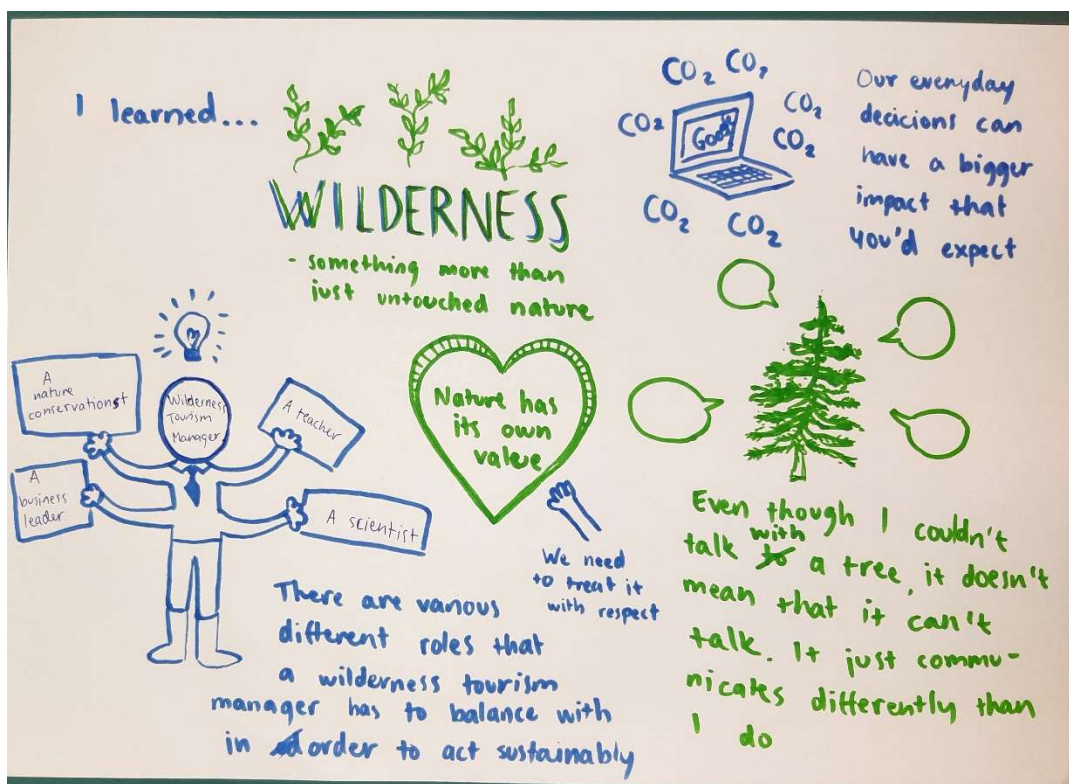 I learned...
WILDERNESS
- something more than
just untouched nature
CO2 CO2
CO2
CO2
CO2
CO2
CO2
Our everyday
decicions can
have a bigger
impact that
you'd expect
A
nature
conservationist
A
business
leader
Wilderness
Tourism
Manager
A teacher
A scientist
Nature has
its own
value
We need
to treat it
with respect
There are various
different roles that
a wilderness tourism
manager has to balance with
in order to act sustainably
Even though I couldn't
talk with a tree, it doesn't
mean that it can't
talk. It just commu-
nicates differently than
I do